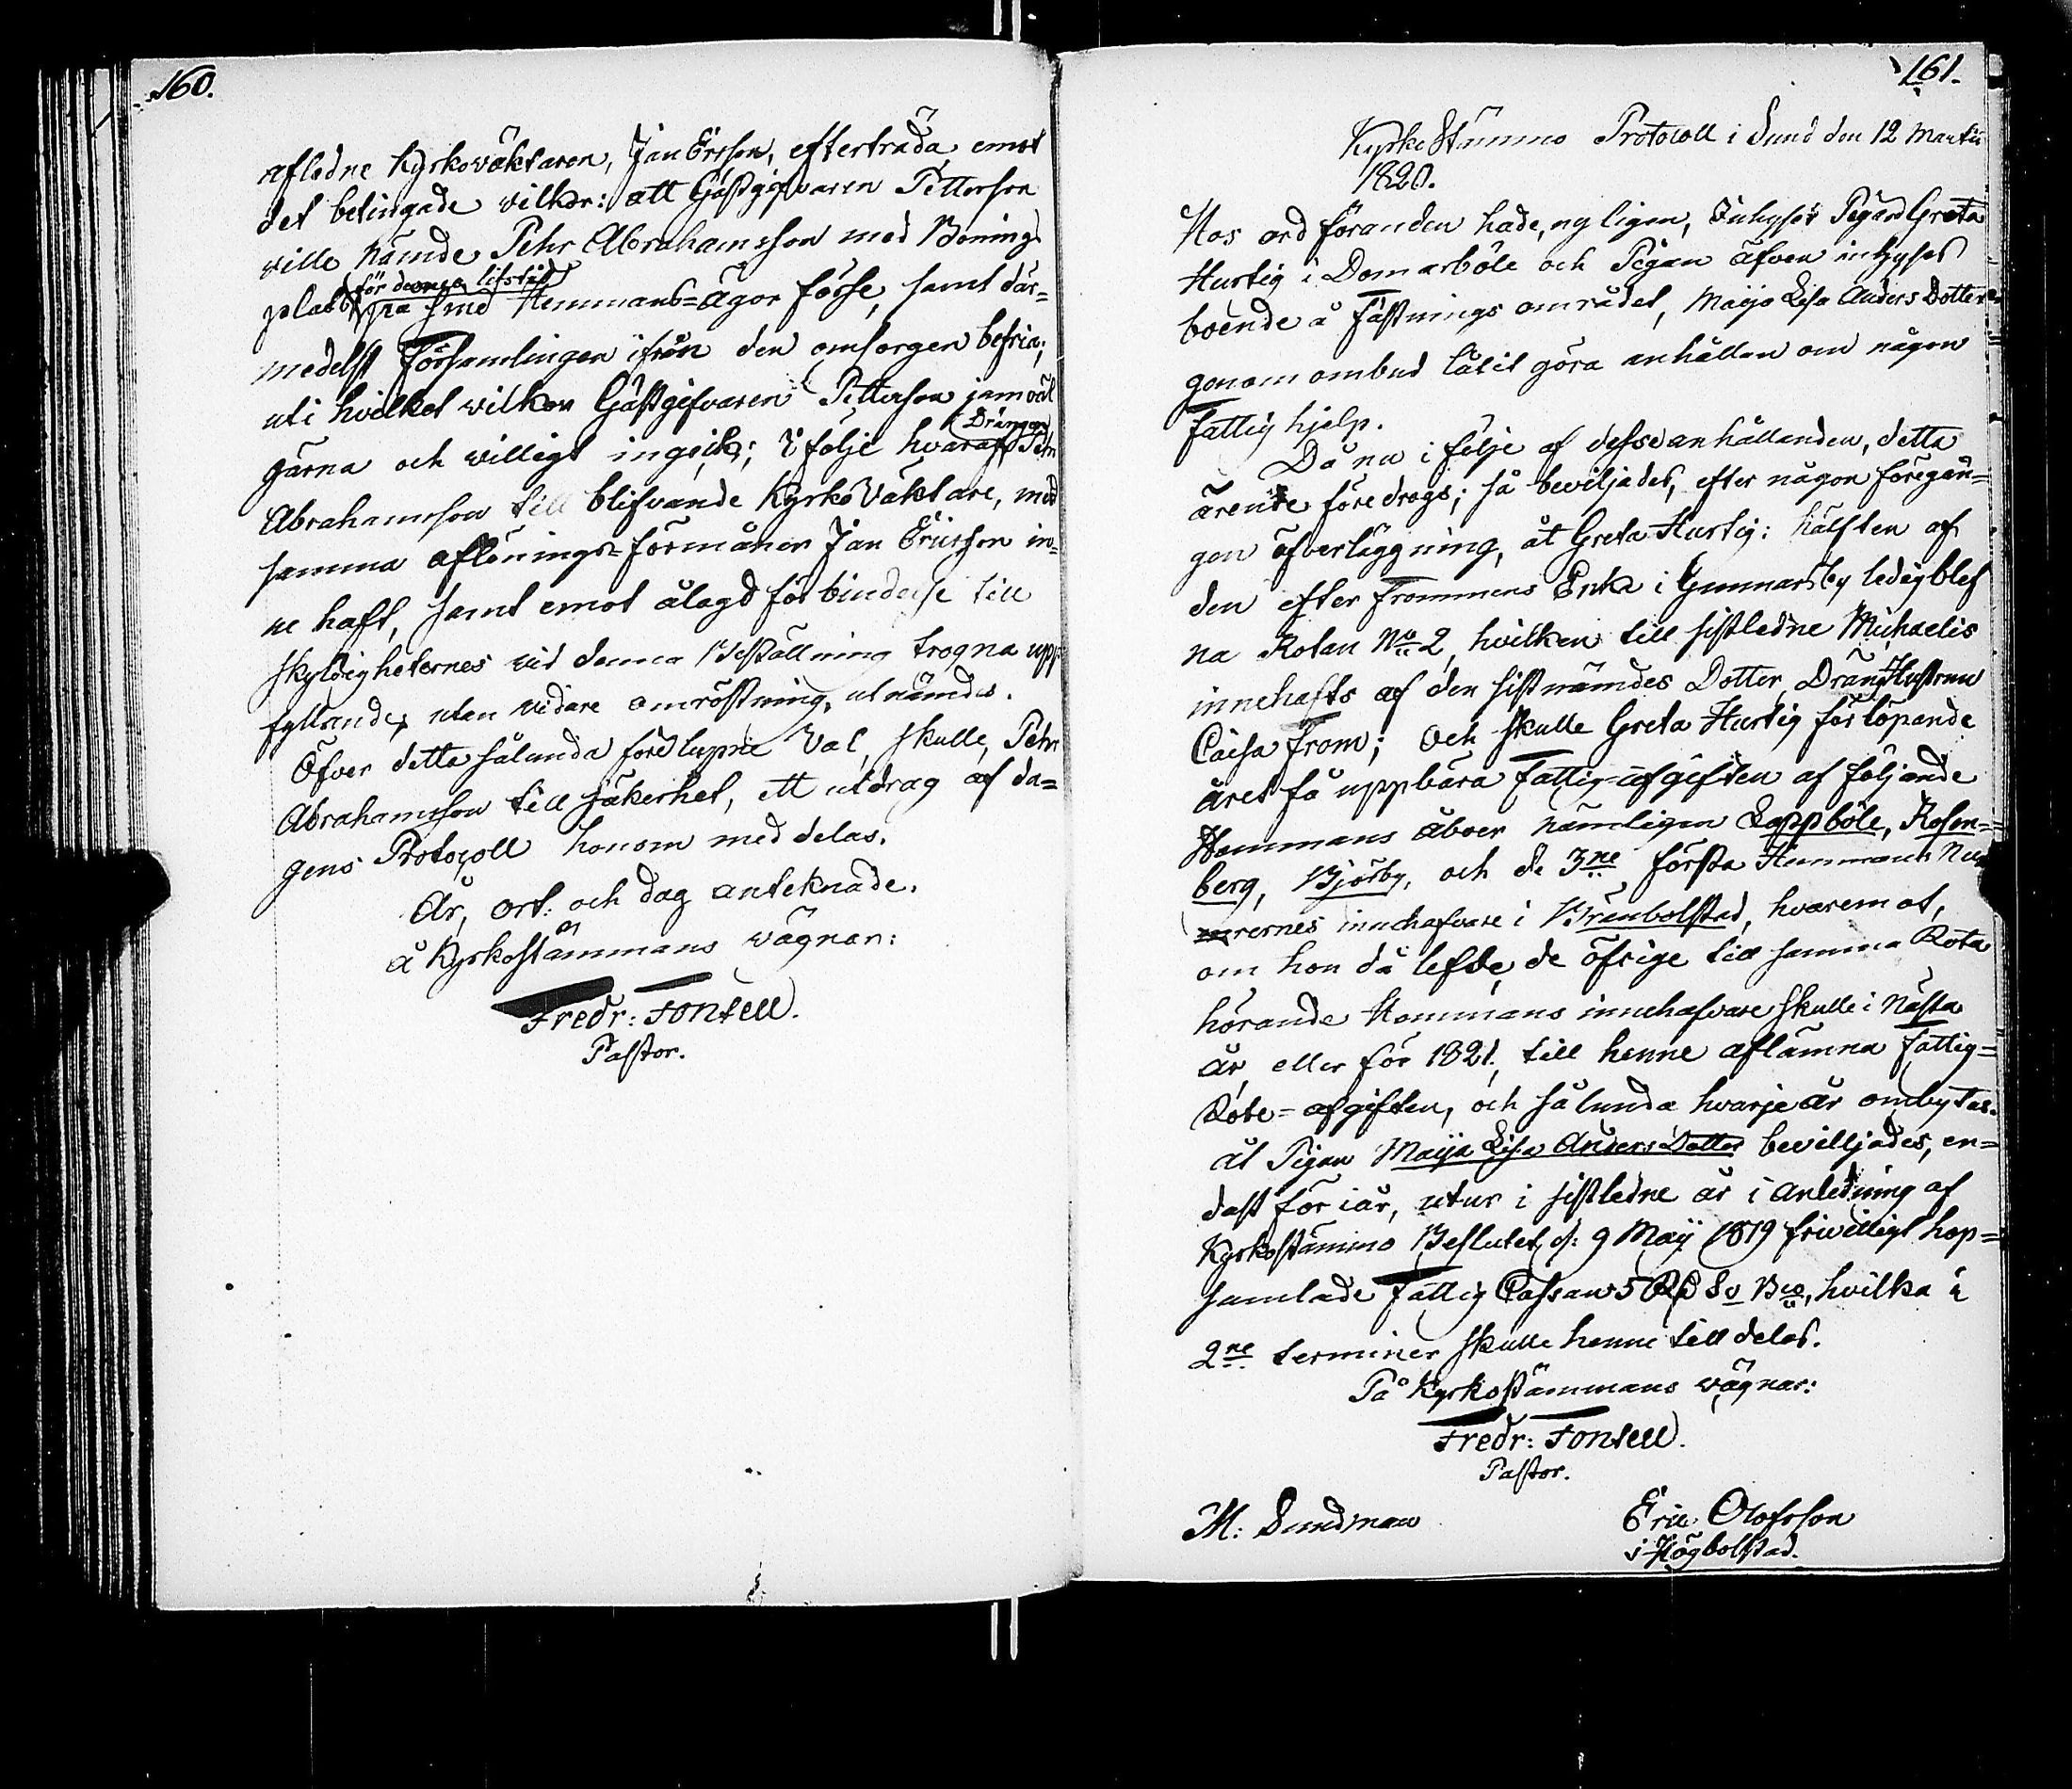 160.
aflidne Kyrkoväktaren, Jan Ersson, efterträda, emot
det betingade vilkor: att Gästgifvaren Pettersson
ville nämde Pehr Abrahamsson med Bonings
för dennes lifstid
plats på sine Hemmans-ägor förse, samt där-
medelst Församlingen ifrån den omsorgen befria;
uti hvilket vilkor Gästgifvaren Petterson jemväl
Drängen
gärna och villigt ingick; I följe hvaraf Pehr
Abrahamsson till blifvande KyrkoVäktare, med
samma aflönings-förmåner Jan Ericsson in-
ne haft, samt emot ålagd förbindelse till
skyldigheternes vid denna Beställning trogna upp-
fyllande, utan vidare omröstning, utnämdes.
Öfver detta sålunda förelupne Val, skulle, Pehr
Abrahamsson till säkerhet, ett utdrag af da-
gens Protocoll honom meddelas.
År, ort: och dag anteknade.
å Kyrkostämmans vägnar:
Fredr: Fontell.
Pastor.
161.
KyrkoStämmo Protocoll i Sund den 12 Martii
1820.
Hos ordföranden hade, nyligen, Inhyses Pigan Greta
Hurtig i Domarböle och Pigan äfven inhyses
boende å Fästnings området, Maija Lisa Anders Dotter
genom ombud låtit göra anhållan om någon
Fattig hjelp.
Då nu i följe af desse anhållanden, detta
ärende föredrogs; så beviljades, efter någon föregån-
gen öfverläggning, åt Greta Hurtig: hälften af
den efter Frommens Enka i Gunnarsby ledigblef
na Rotan No 2, hvilken till sistledne Michaelis
innehafts af den sistnämdes Dotter, DrängHustrun
Caisa From; Och skulle Greta Hurtig förlöpande
året få uppbära Fattig-afgiften af följande
Hemmans åboer nämligen Lappböle, Rosen-
berg, Björby, och de 3ne första Hemmans Num
rernes innehafvare i Bränbolstad, hvaremot,
om hon då lefde, de öfrige till samma Rota
hörande Hemmans innehafvare skulle i Nästa
år, eller för 1821, till henne aflämna fattig-
Rote-afgiften, och sålunda hvarje år ombytas.
åt Pigan Maija Lisa Anders Dotter bevilljades, en-
dast för i år, utur i sistledne år i anledning af
Kyrkostämmo Beslutet, d: 9 Maij 1819 frivilligt hop-
samlade Fattig Cassan 5 Rd Bco, hvilka i
2ne terminer skulle henne tilldelas.
På Kyrkostämmans vägnar:
Fredr: Fontell.
Pastor.
M: Sundman
Eric Olofsson
i Högbolstad.